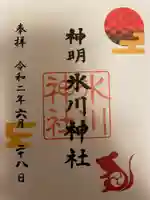 神明
氷川神社
氷川
神社
奉拝
令和二年六月二十八日